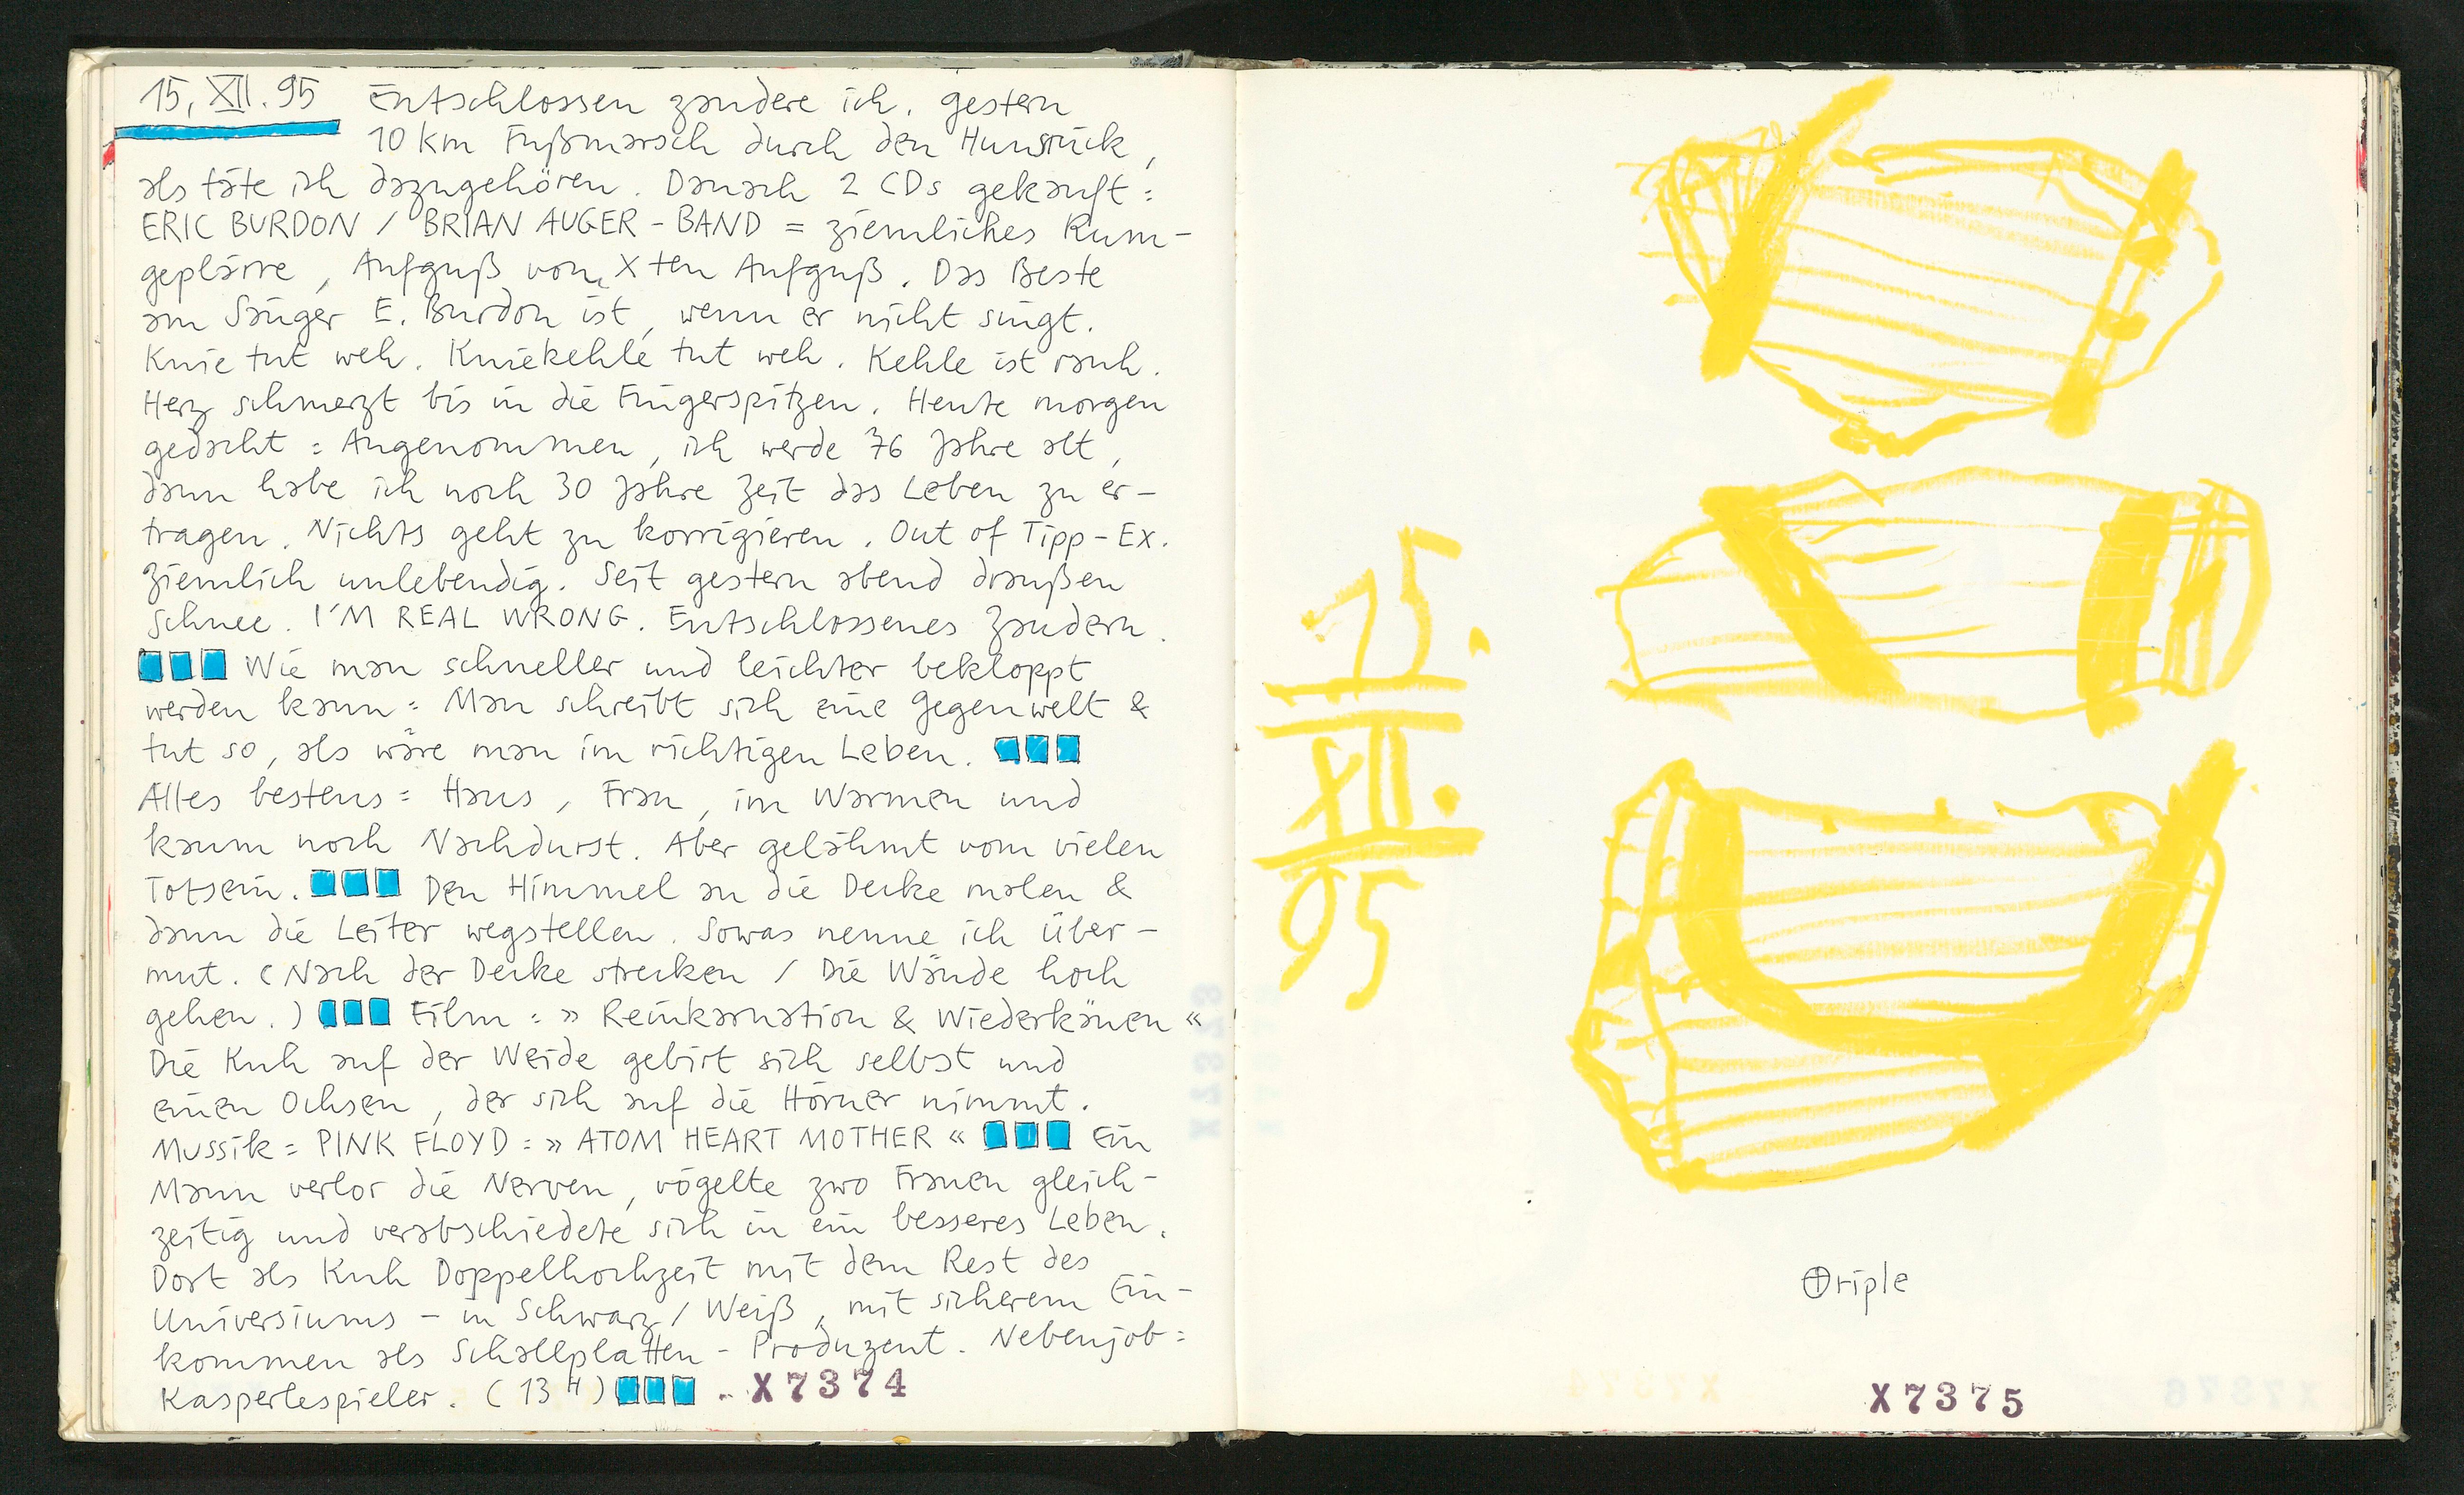 15. XII. 95 Entschlossen zaudere ich. Gestern
10 km Fußmarsch durch den Hunsrück,
als täte ich dazugehören. Danach 2 CDs gekauft:
ERIC BURDON / BRIAN AUGER-BAND = ziemliches Rum-
geplärre, Aufguß vom Xten Aufguß. Das Beste
am Sänger E. Burdon ist, wenn er nicht singt.
Knie tut weh. Kniekehle tut weh. Kehle ist rauh.
Herz schmerzt bis in die Fingerspitzen. Heute morgen
gedacht: Angenommen, ich werde 76 Jahre alt,
dann habe ich noch 30 Jahre Zeit das Leben zu er-
tragen. Nichts geht zu korrigieren. Out of Tipp-Ex.
Ziemlich unlebendig. Seit gestern abend draußen
Schnee. I'M REAL WRONG. Entschlossenes Zaudern.
Wie man schneller und leichter bekloppt
werden kann: Man schreibt sich eine Gegenwelt &
tut so, als wäre man im richtigen Leben.
Alles bestens: Haus, Frau, im Warmen und
kaum noch Nachdurst. Aber gelähmt vom vielen
Totsein. Den Himmel an die Decke malen &
dann die Leiter wegstellen. Sowas nenne ich Über-
mut. (Nach der Decke strecken / Die Wände hoch
gehen.) Film: »Reinkarnation & Wiederkäuen«
Die Kuh auf der Weide gebirt sich selbst und
einen Ochsen, der sich auf die Hörner nimmt.
Mussik: PINK FLOYD: »ATOM HEART MOTHER« Ein
Mann verlor die Nerven, vögelte zwo Frauen gleich-
zeitig und verabschiedete sich in ein besseres Leben.
Dort als Kuh Doppelhochzeit mit dem Rest des
Universiums – in Schwarz/Weiß, mit sicherem Ein-
kommen als Schallplatten-Produzent. Nebenjob:
Kasperlespieler. (13 H) X7374
15.
XII.
95
Triple
X7375